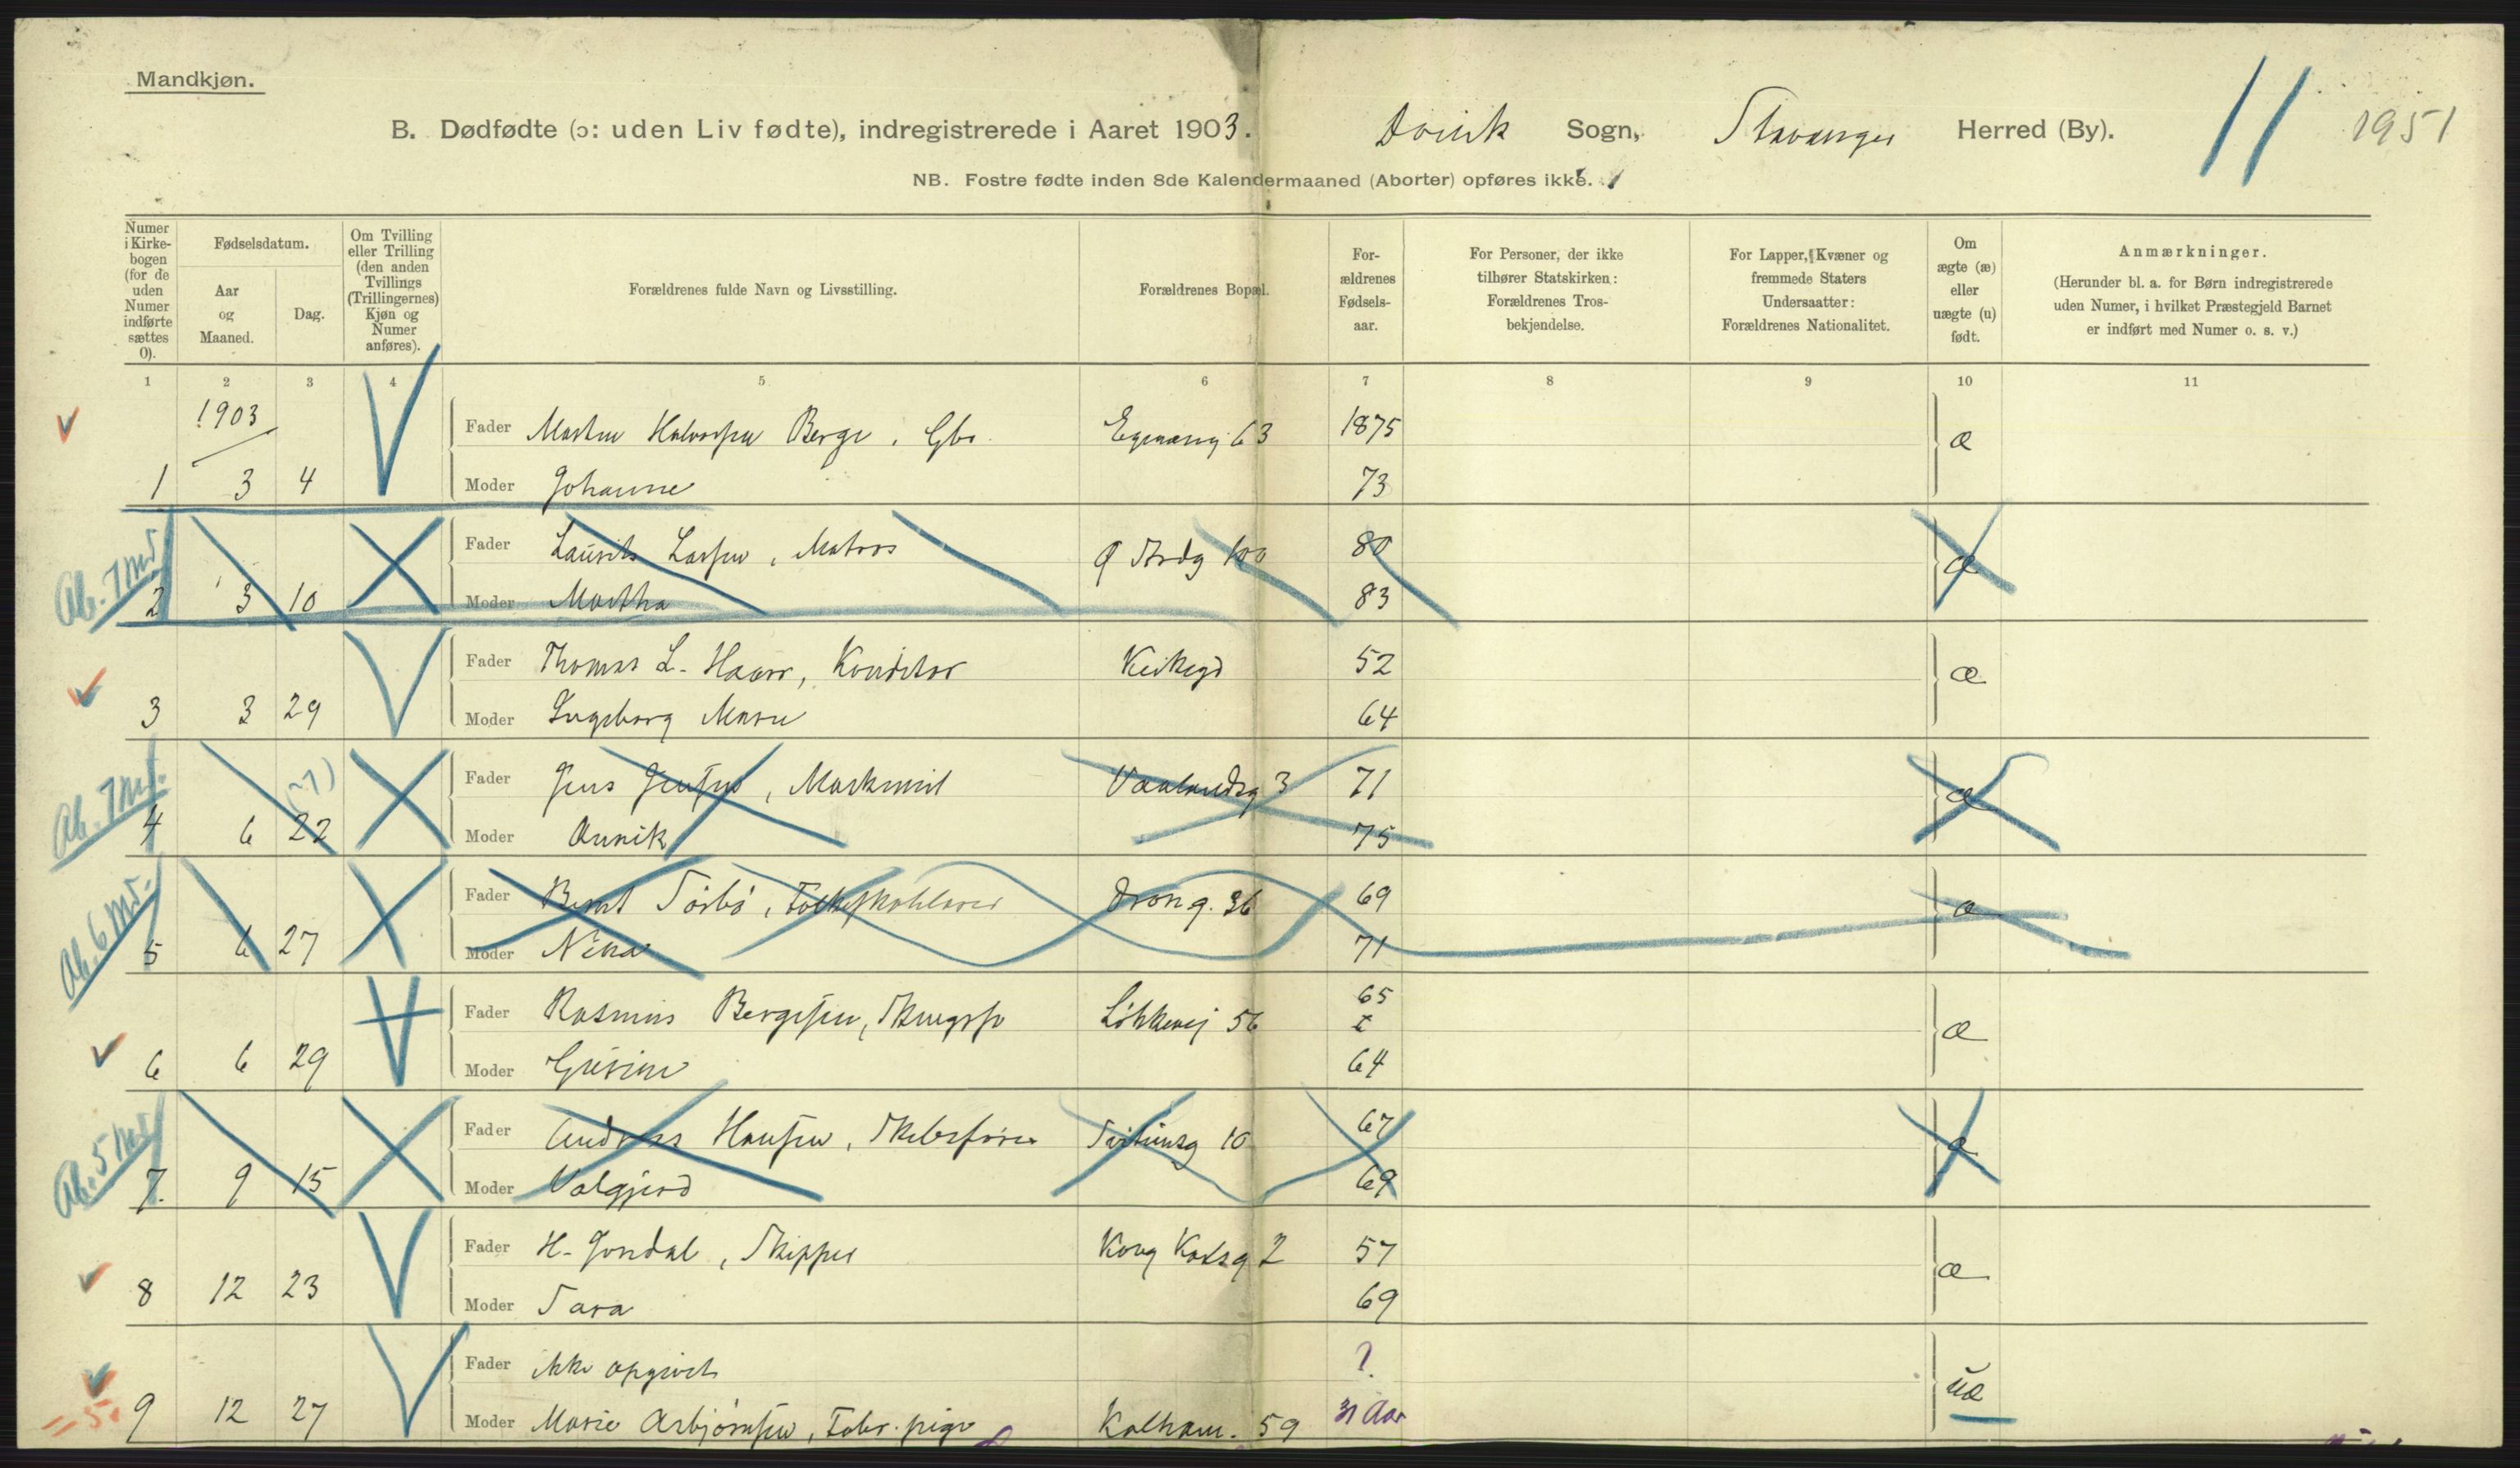 Mandkjøn.
B. Dødfødte (ɔ: uden Liv fødte), indregistrerede i Aaret 1903. Domk Sogn, Stavanger Herred (By). 11 1951
NB. Fostre fødte inden 8de Kalendermaaned (Aborter) opføres ikke.
Numer i Kirke-bogen (for de uden Numer indførte sættes 0).
Fødselsdatum.
Aar og Maaned.
Dag.
Om Tvilling eller Trilling (den anden Tvillings (Trillingernes) Kjøn og Numer anføres).
Forældrenes fulde Navn og Livsstilling.
Forældrenes Bopæl.
For-ældrenes Fødsels-aar.
For Personer, der ikke tilhører Statskirken: Forældrenes Tros-bekjendelse.
For Lapper, Kvæner og fremmede Staters Undersaatter: Forældrenes Nationalitet.
Om ægte (æ) eller uægte (u) født.
Anmærkninger.
(Herunder bl. a. for Børn indregistrerede uden Numer, i hvilket Præstegjeld Barnet er indført med Numer o. s. v.)
1 2 3 4 5 6 7 8 9 10 11
1903
Fader Martin Halvorsen Berge, Gbr. 63 1875 æ
1 3 4 Moder Johanne 73
Ab. 7 md.
Fader Laurits Larsen, Matros Ø Strdg 100 80 æ
2 3 10 Moder Martha 83
Fader Thomas L. Haarr, Konditor Kirkegd 52 æ
3 3 29 Moder Ingeborg Marie 64
Ab. 7 md.
(7)
Fader Jens Jensen, Maskinist Vaalandsg 3 71 æ
4 6 22 Moder Annik 75
Ab. 6 md.
Fader Bernt Sørbø, Folkeskolelærer Drong. 36 69 æ
5 6 27 Moder Nika 71
Fader Rasmus Bergesen, Løkkevej 56 65 æ
6 6 29 Moder Gurine 64
Ab. 5 md
Fader Andreas Hansen, Skibsfører 10 67 æ
7. 9 15 Moder Valgjerd 69
Fader H. Jondal, Skipper Kong Karlsg 2 57 æ
8 12 23 Moder Sara 69
Fader ikke opgivet ? uæ
= 5.
9 12 27 Moder Marie Asbjørnsen, Fabr. pige Kalham. 59 31 Aar